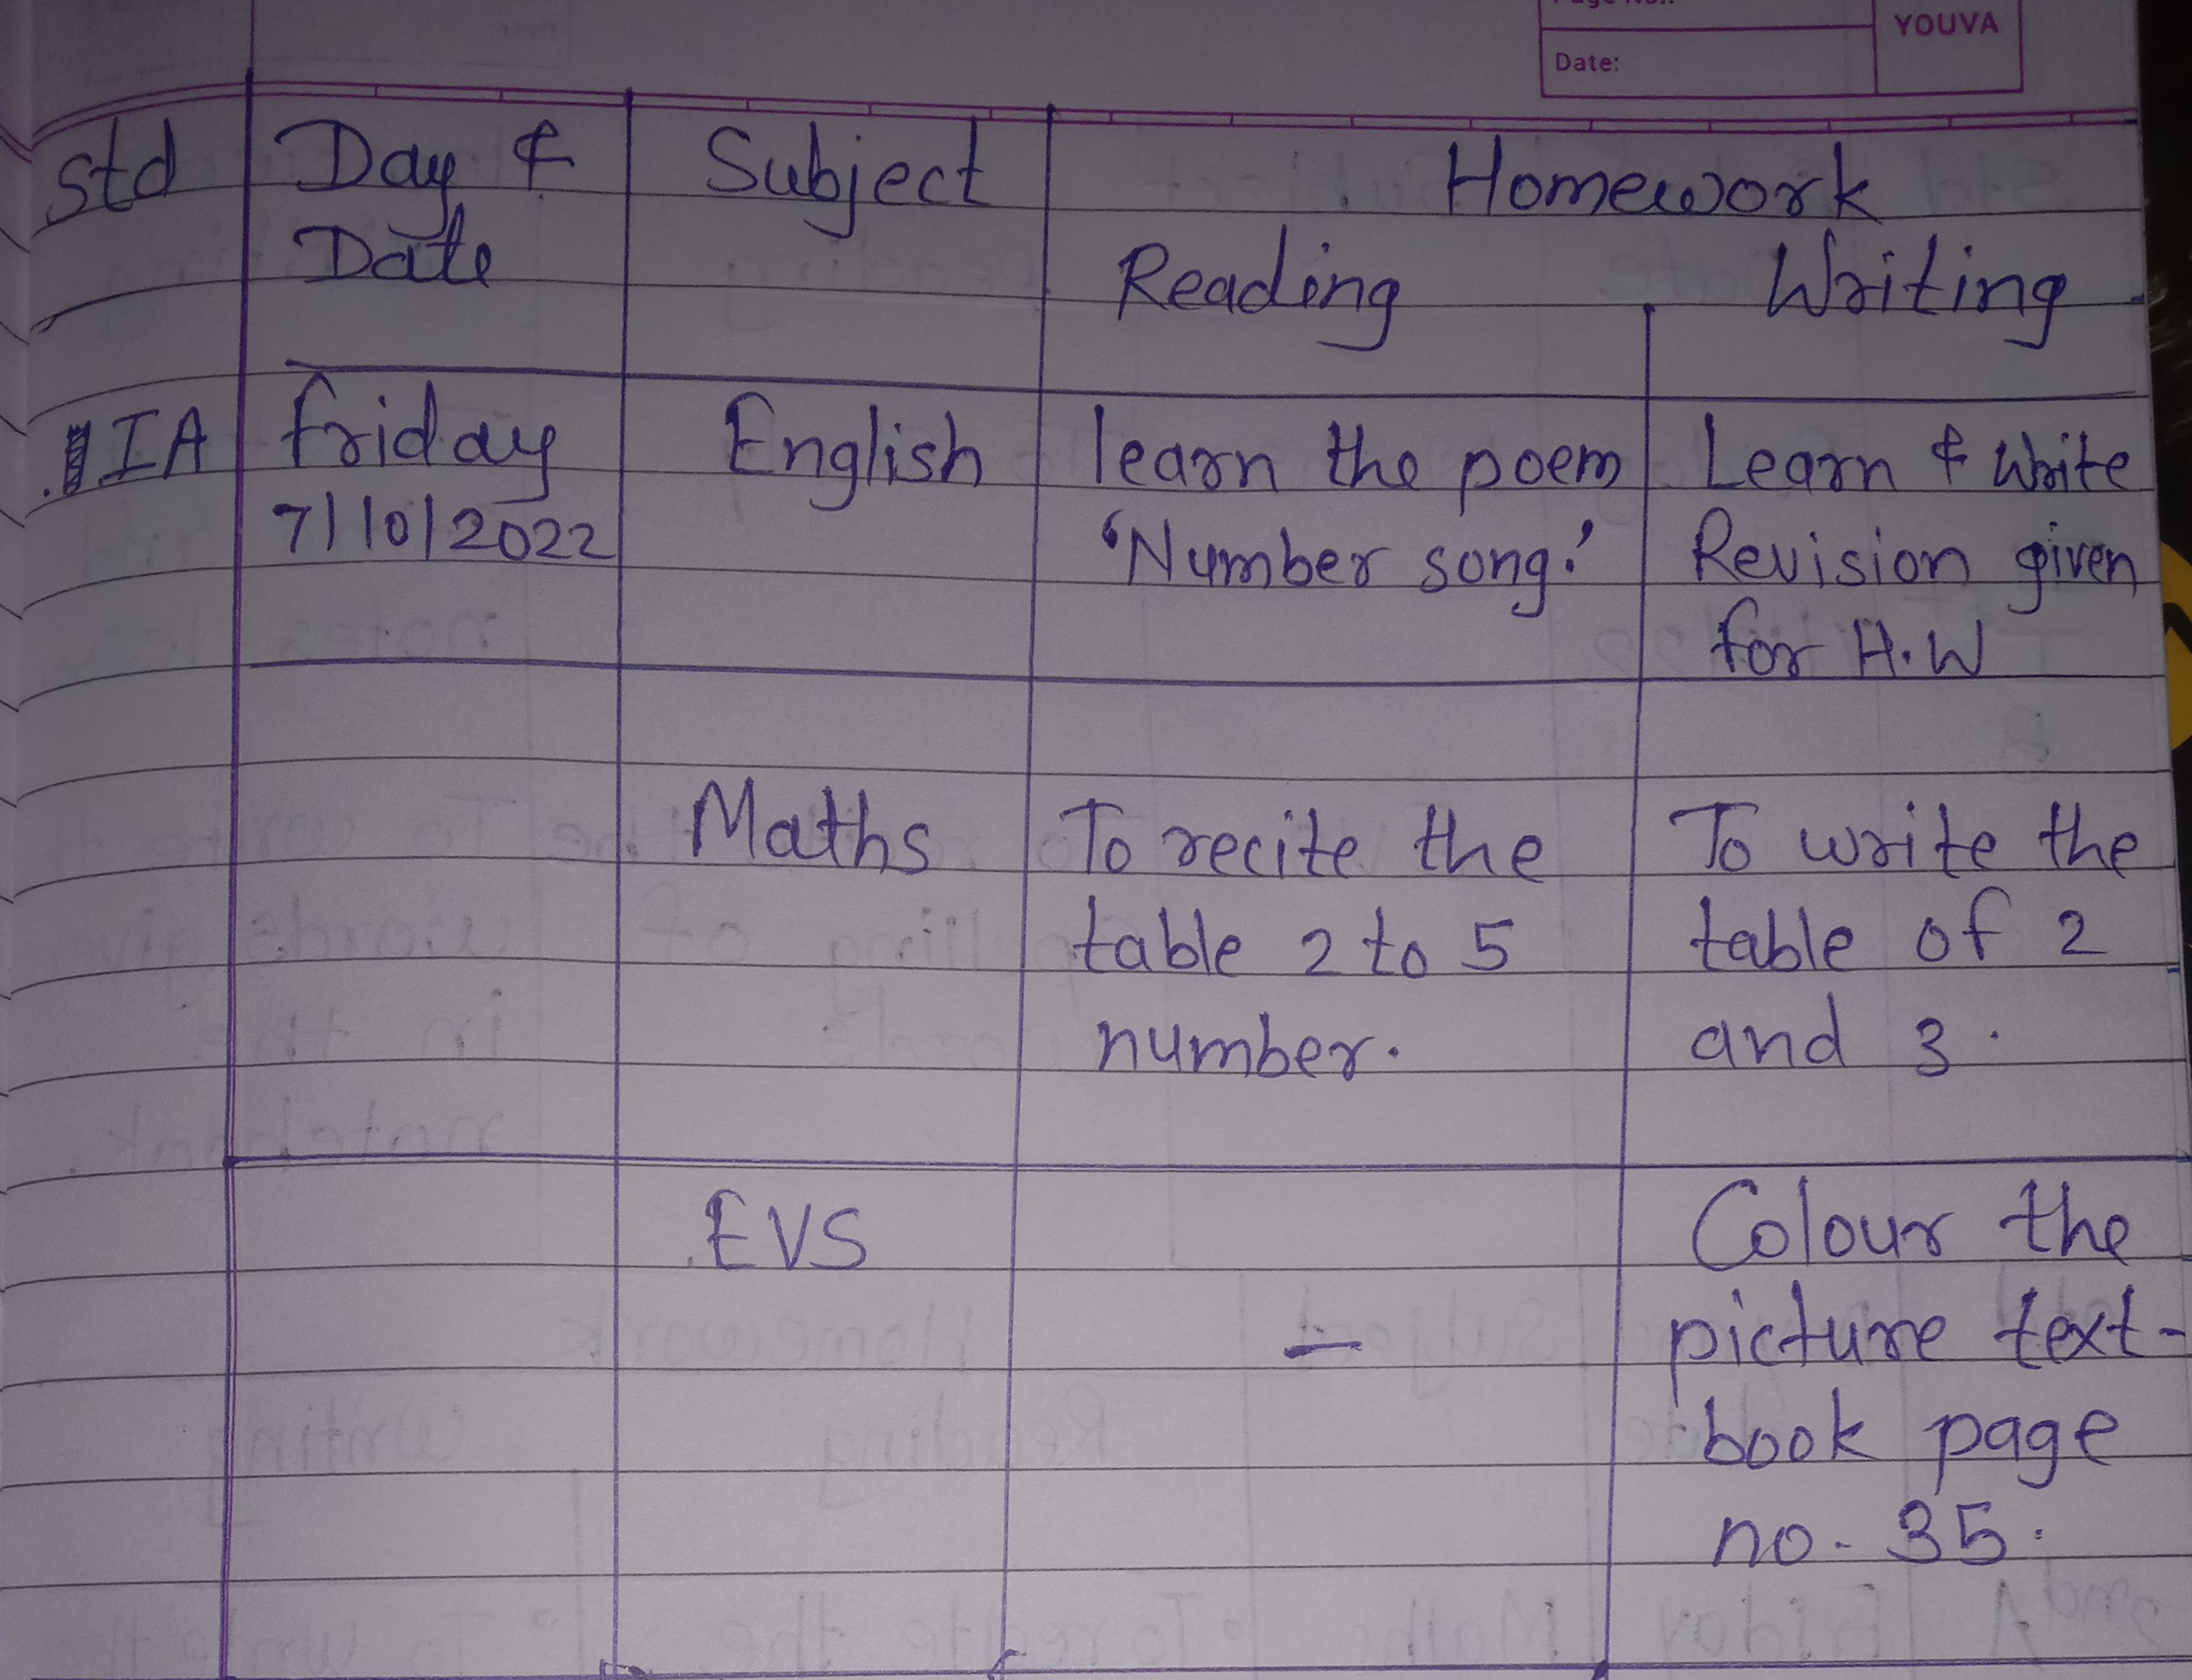 YOUVA
Date:
Std Day & Subject Homework
Date Reading Writing
IA friday English learn the poem Learn & write
7/10/2022 'Number song.' Revision given
for H.W
Maths To recite the To write the
table 2 to 5 table of 2
number. and 3.
EVS Colour the
– picture text-
book page
no. 35.